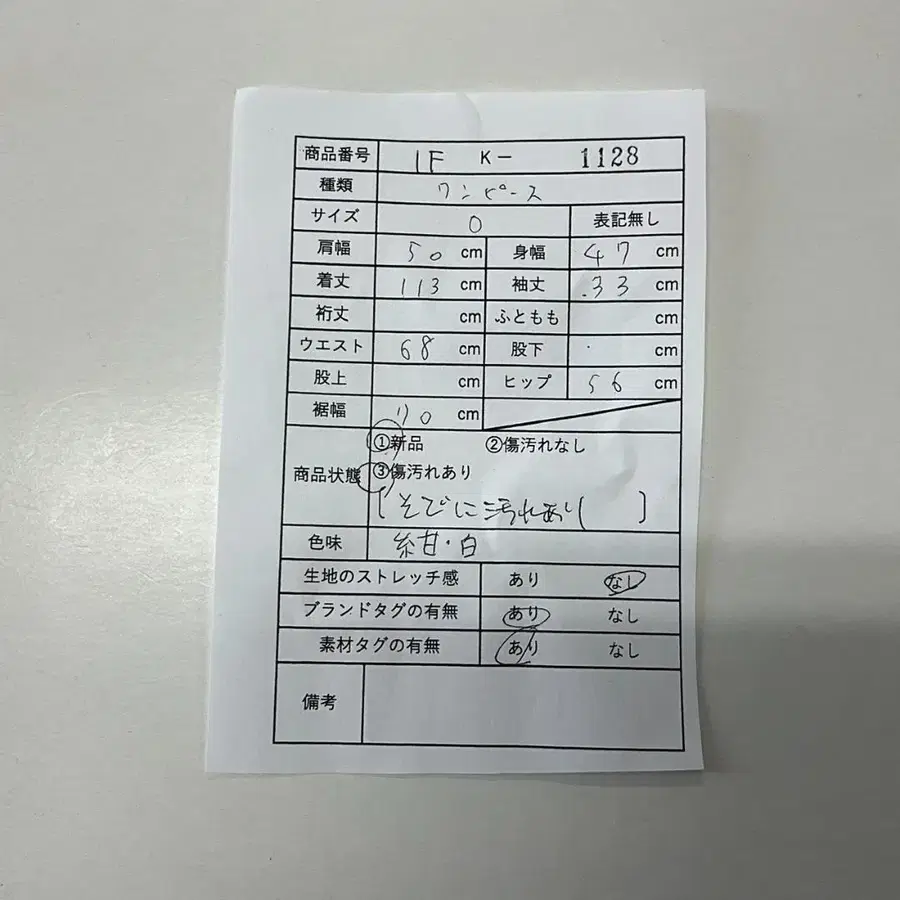 商品番号 1F K- 1128
種類 ワンピース
サイズ 0 表記無し
肩幅 50 cm 身幅 47 cm
着丈 113 cm 袖丈 .33 cm
裄丈 cm ふともも cm
ウエスト 68 cm 股下 cm
股上 cm ヒップ 56 cm
裾幅 70 cm
①新品 ②傷汚れなし
商品状態 ③傷汚れあり
[そでに汚れあり ]
色味 紺・白
生地のストレッチ感 あり なし
ブランドタグの有無 あり なし
素材タグの有無 あり なし
備考